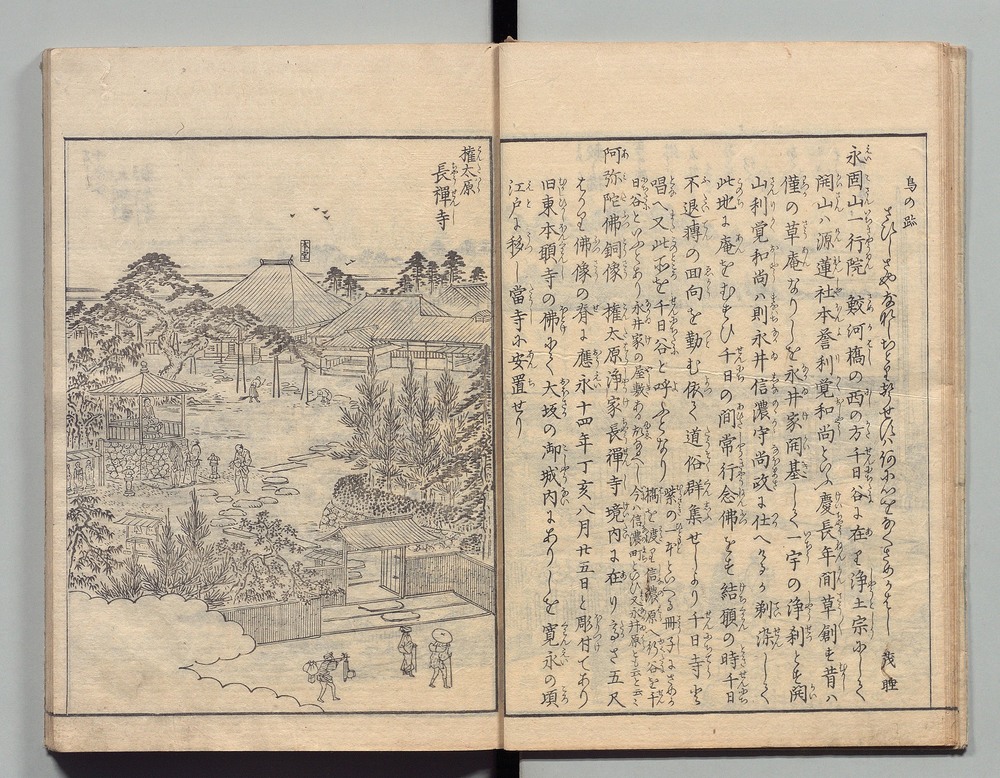 鳥の跡
茂睡
永固山一行院 鮫河橋の西の方千日谷に在り浄土宗にして
開山ハ源蓮社本誉利覚和尚といふ慶長年間草創す昔ハ
僅の草庵なりしを永井家開基して一宇の浄刹とす開
山利覚和尚ハ則永井信濃守尚政に仕へけるか剃染して
此地に庵をむすひ千日の間常行念佛をす結願の時千日
不退轉の回向を勤む依て道俗群集せしより千日寺と
唱へ又此所を千日谷と呼ふとなり
紫の一本といへる冊子にさめか
橋を渡り信濃原へ行谷を千
日谷といふとあり永井家の屋敷ある
今ハ信濃町といひ又永井原とも云と云々
阿弥陀佛銅像 権太原浄家長禅寺境内に在り高さ五尺
はかり佛像の脊に應永十四年丁亥八月廿五日と彫付てあり
旧東本願寺の佛にて大坂の御城内にありしを寛永の頃
江戸に移し當寺に安置せり
権太原
長禪寺
本堂